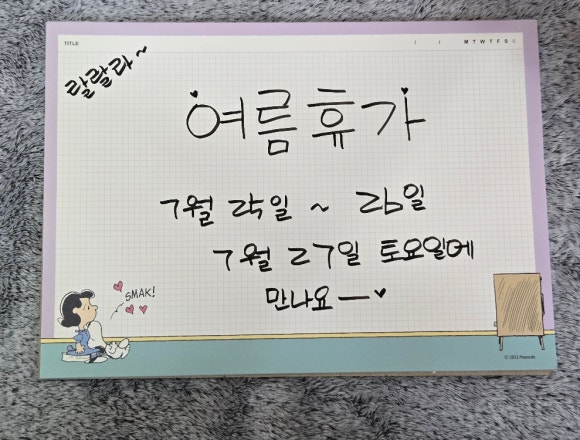 TITLE / / M T W T F S S
랄랄라~
여름휴가
7월 ~ 26일
7월 27일 토요일에
만나요—♥
SMAK!
Peanuts